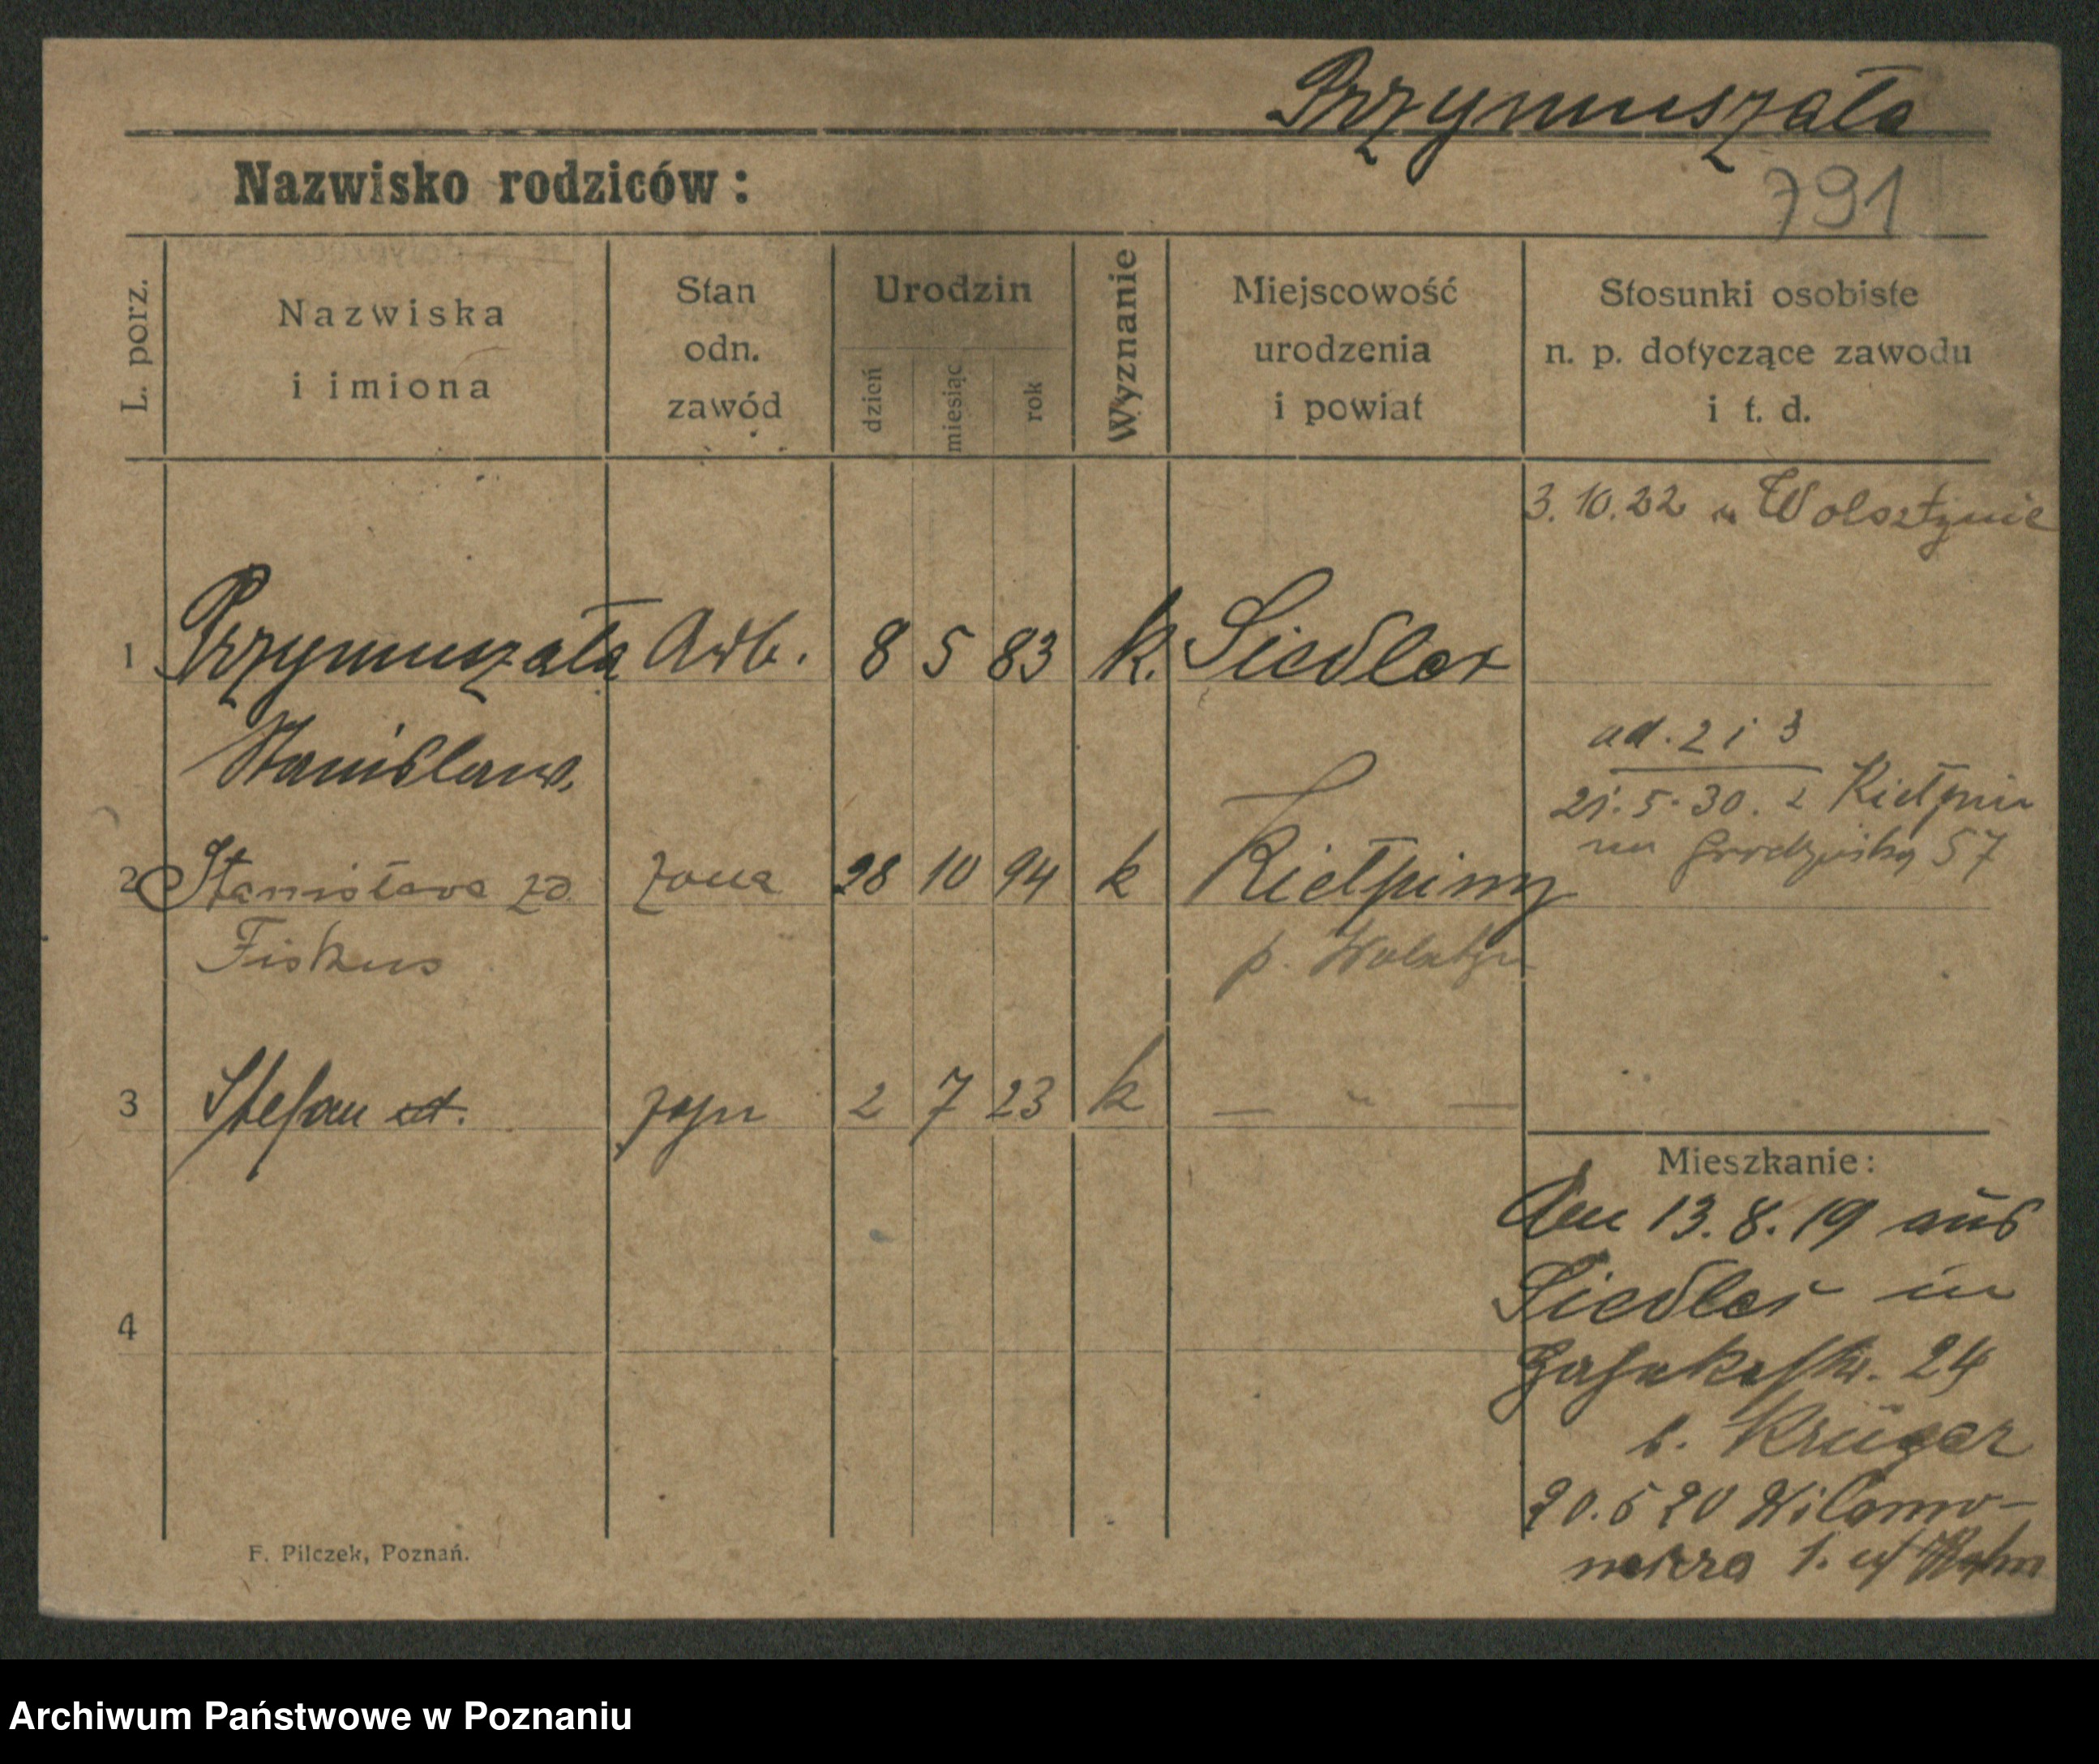 Przymuszała
Nazwisko rodziców:
791
L. porz.
Nazwiska
i imiona
Stan
odn.
zawód
Urodzin
dzień
miesiąc
rok
Wyznanie
Miejscowość
urodzenia
i powiat
Stosunki osobiste
n. p. dotyczące zawodu
i t. d.
3. 10. 22 w Wolsztynie
1 Przymuszała Arb. 8 5 83 k. Siedler
Stanislaus.
ad. 2 i 3
21. 5. 30. z Kiełpin
na Grodziską 57
2 Stanisława zd. żona 28 10 94 k Kiełpiny
Fiskus
p. Wolsztyn
3 Stefan syn 2 7 23 k — " —
Mieszkanie:
Den 13. 8. 19 aus
Siedler in
24
b. Krüger
20. 5 20
1.
4
F. Pilczek, Poznań.
Archiwum Państwowe w Poznaniu